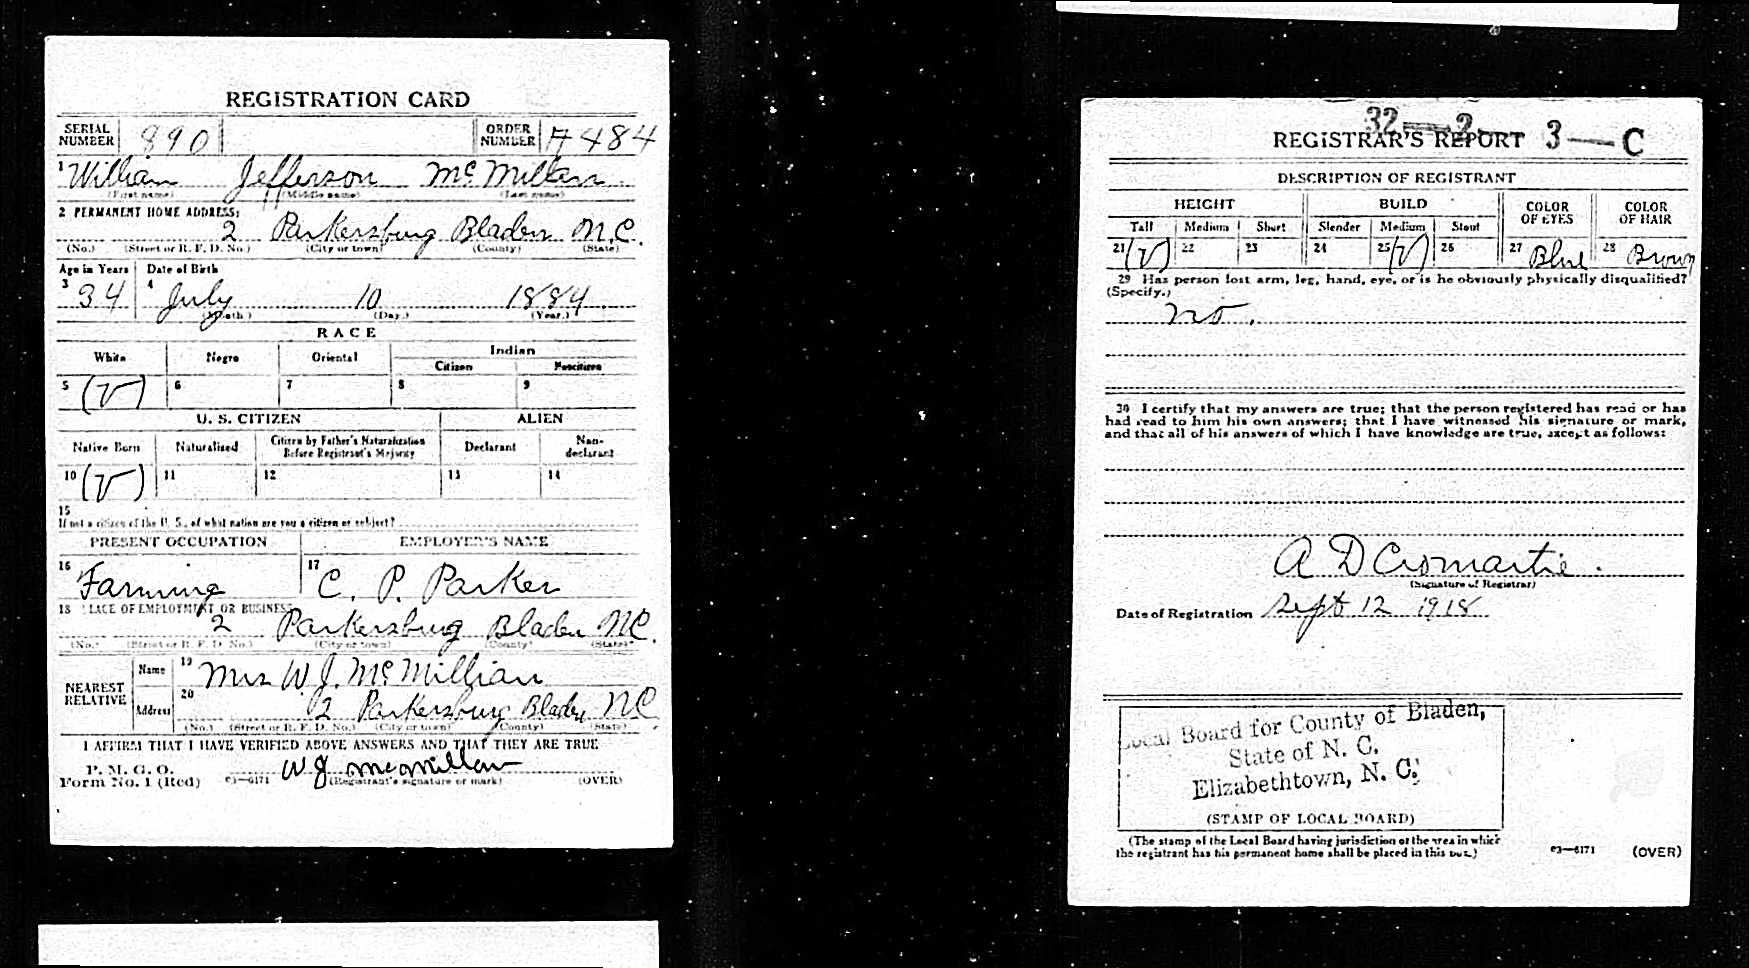 REGISTRATION CARD
SERIAL NUMBER 890 ORDER NUMBER A484
1 William Jefferson McMillan
(First name) (Middle name) (Last name)
2 PERMANENT HOME ADDRESS:
2 Parkersburg Bladen N.C.
(No.) (Street or R. F. D. No.) (City or town) (County) (State)
Age in Years Date of Birth
3 34 4 July 10 1884
(Month.) (Day.) (Year.)
RACE
White Negro Oriental Indian
Citizen Noncitizen
5 (V) 6 7 8 9
U. S. CITIZEN ALIEN
Native Born Naturalized Citizen by Father's Naturalization Before Registrant's Majority Declarant Non-declarant
10 (V) 11 12 13 14
15
If not a citizen of the U. S., of what nation are you a citizen or subject?
PRESENT OCCUPATION EMPLOYER'S NAME
16 Farming 17 C. P. Parker
18 PLACE OF EMPLOYMENT OR BUSINESS:
2 Parkersburg Bladen NC.
(No.) (Street or R. F. D. No.) (City or town) (County) (State)
NEAREST RELATIVE Name 19 Mrs W J. McMillian
Address 20 2 Parkersburg Bladen NC
(No.) (Street or R. F. D. No.) (City or town) (County) (State)
I AFFIRM THAT I HAVE VERIFIED ABOVE ANSWERS AND THAT THEY ARE TRUE
P. M. G. O.
Form No. 1 (Red) 03—6171 W J McMillan (OVER)
(Registrant's signature or mark)
32—2—3—C
REGISTRAR'S REPORT
DESCRIPTION OF REGISTRANT
HEIGHT BUILD COLOR OF EYES COLOR OF HAIR
Tall Medium Short Slender Medium Stout
21 (V) 22 23 24 25 (V) 26 27 Blue 28 Brown
29 Has person lost arm, leg, hand, eye, or is he obviously physically disqualified?
(Specify.)
No.
30 I certify that my answers are true; that the person registered has read or has
had read to him his own answers; that I have witnessed his signature or mark,
and that all of his answers of which I have knowledge are true, except as follows:
A D Cromartie.
(Signature of Registrar)
Date of Registration Sept 12 1918
Local Board for County of Bladen,
State of N. C.
Elizabethtown, N. C.
(STAMP OF LOCAL BOARD)
(The stamp of the Local Board having jurisdiction of the area in which
the registrant has his permanent home shall be placed in this box.)
03—6171 (OVER)